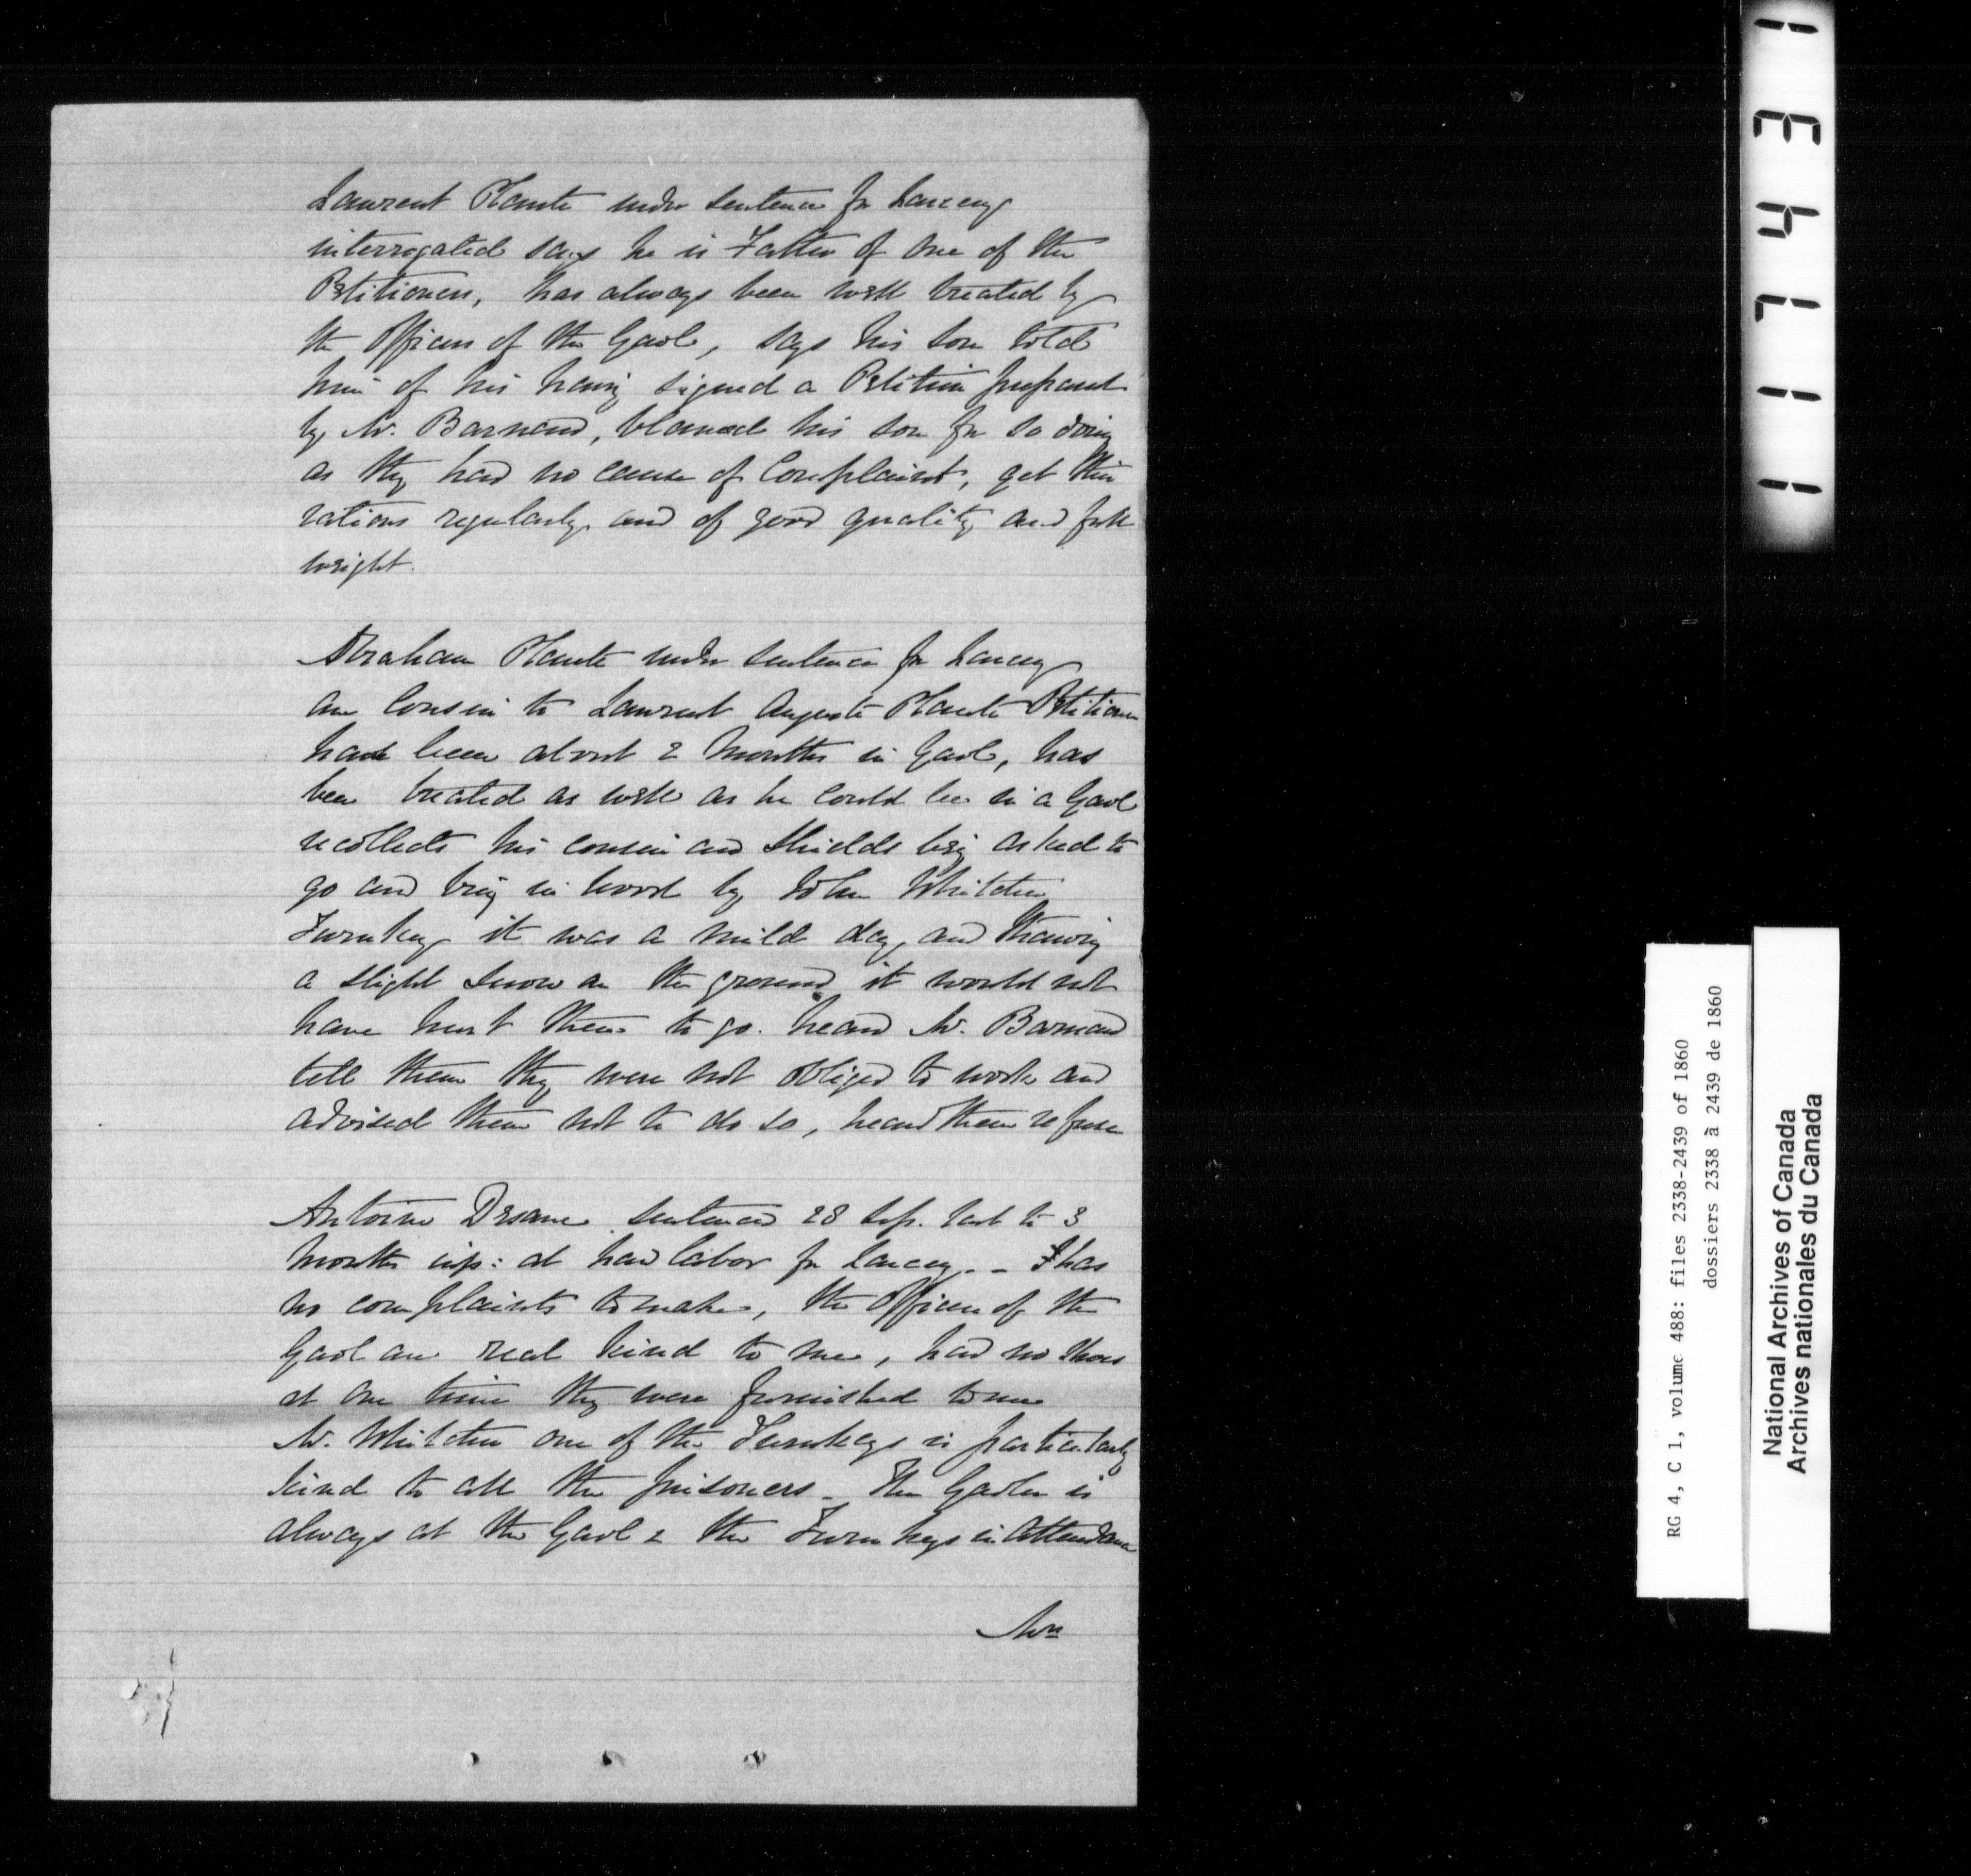 Laurent Plante under sentence for Larceny
interrogated says he is Father of one of the
Petitioners, has always been well treated by
the officers of the Gaol, says his son told
him of his having signed a Petition prepared
by Mr. Barnard, blamed his son for so doing
as they had no cause of Complaint, get their
rations regularly and of good quality and full
weight.
Abraham Plante under sentence for Larceny
am Cousin to Laurent Auguste Plante Petitioner
has been about 2 Months in Gaol, has
been treated as well as he could be in a Gaol
recollects his cousin and Shields being asked to
go and bring in wood by John Whitcher
Turnkey it was a mild day, and thawing
a slight snow on the ground it would not
have hurt them to go. heard Mr. Barnard
tell them they were not obliged to work and
advised them not to do so, heard them refuse
Antoine sentenced 28 Sep. last to 3
Months imp: at hard labor for larceny. - I has
no complaints to make, the officers of the
Gaol are real kind to me, had no shoes
at one time they were furnished to me
Mr. Whitcher one of the Turnkeys is particularly
kind to all the prisoners - The Gaoler is
always at the Gaol & the Turnkeys in attendance
Wm
114341
RG 4, C 1, volume 488: files 2338-2439 of 1860
dossiers 2338 à 2439 de 1860
National Archives of Canada
Archives nationales du Canada